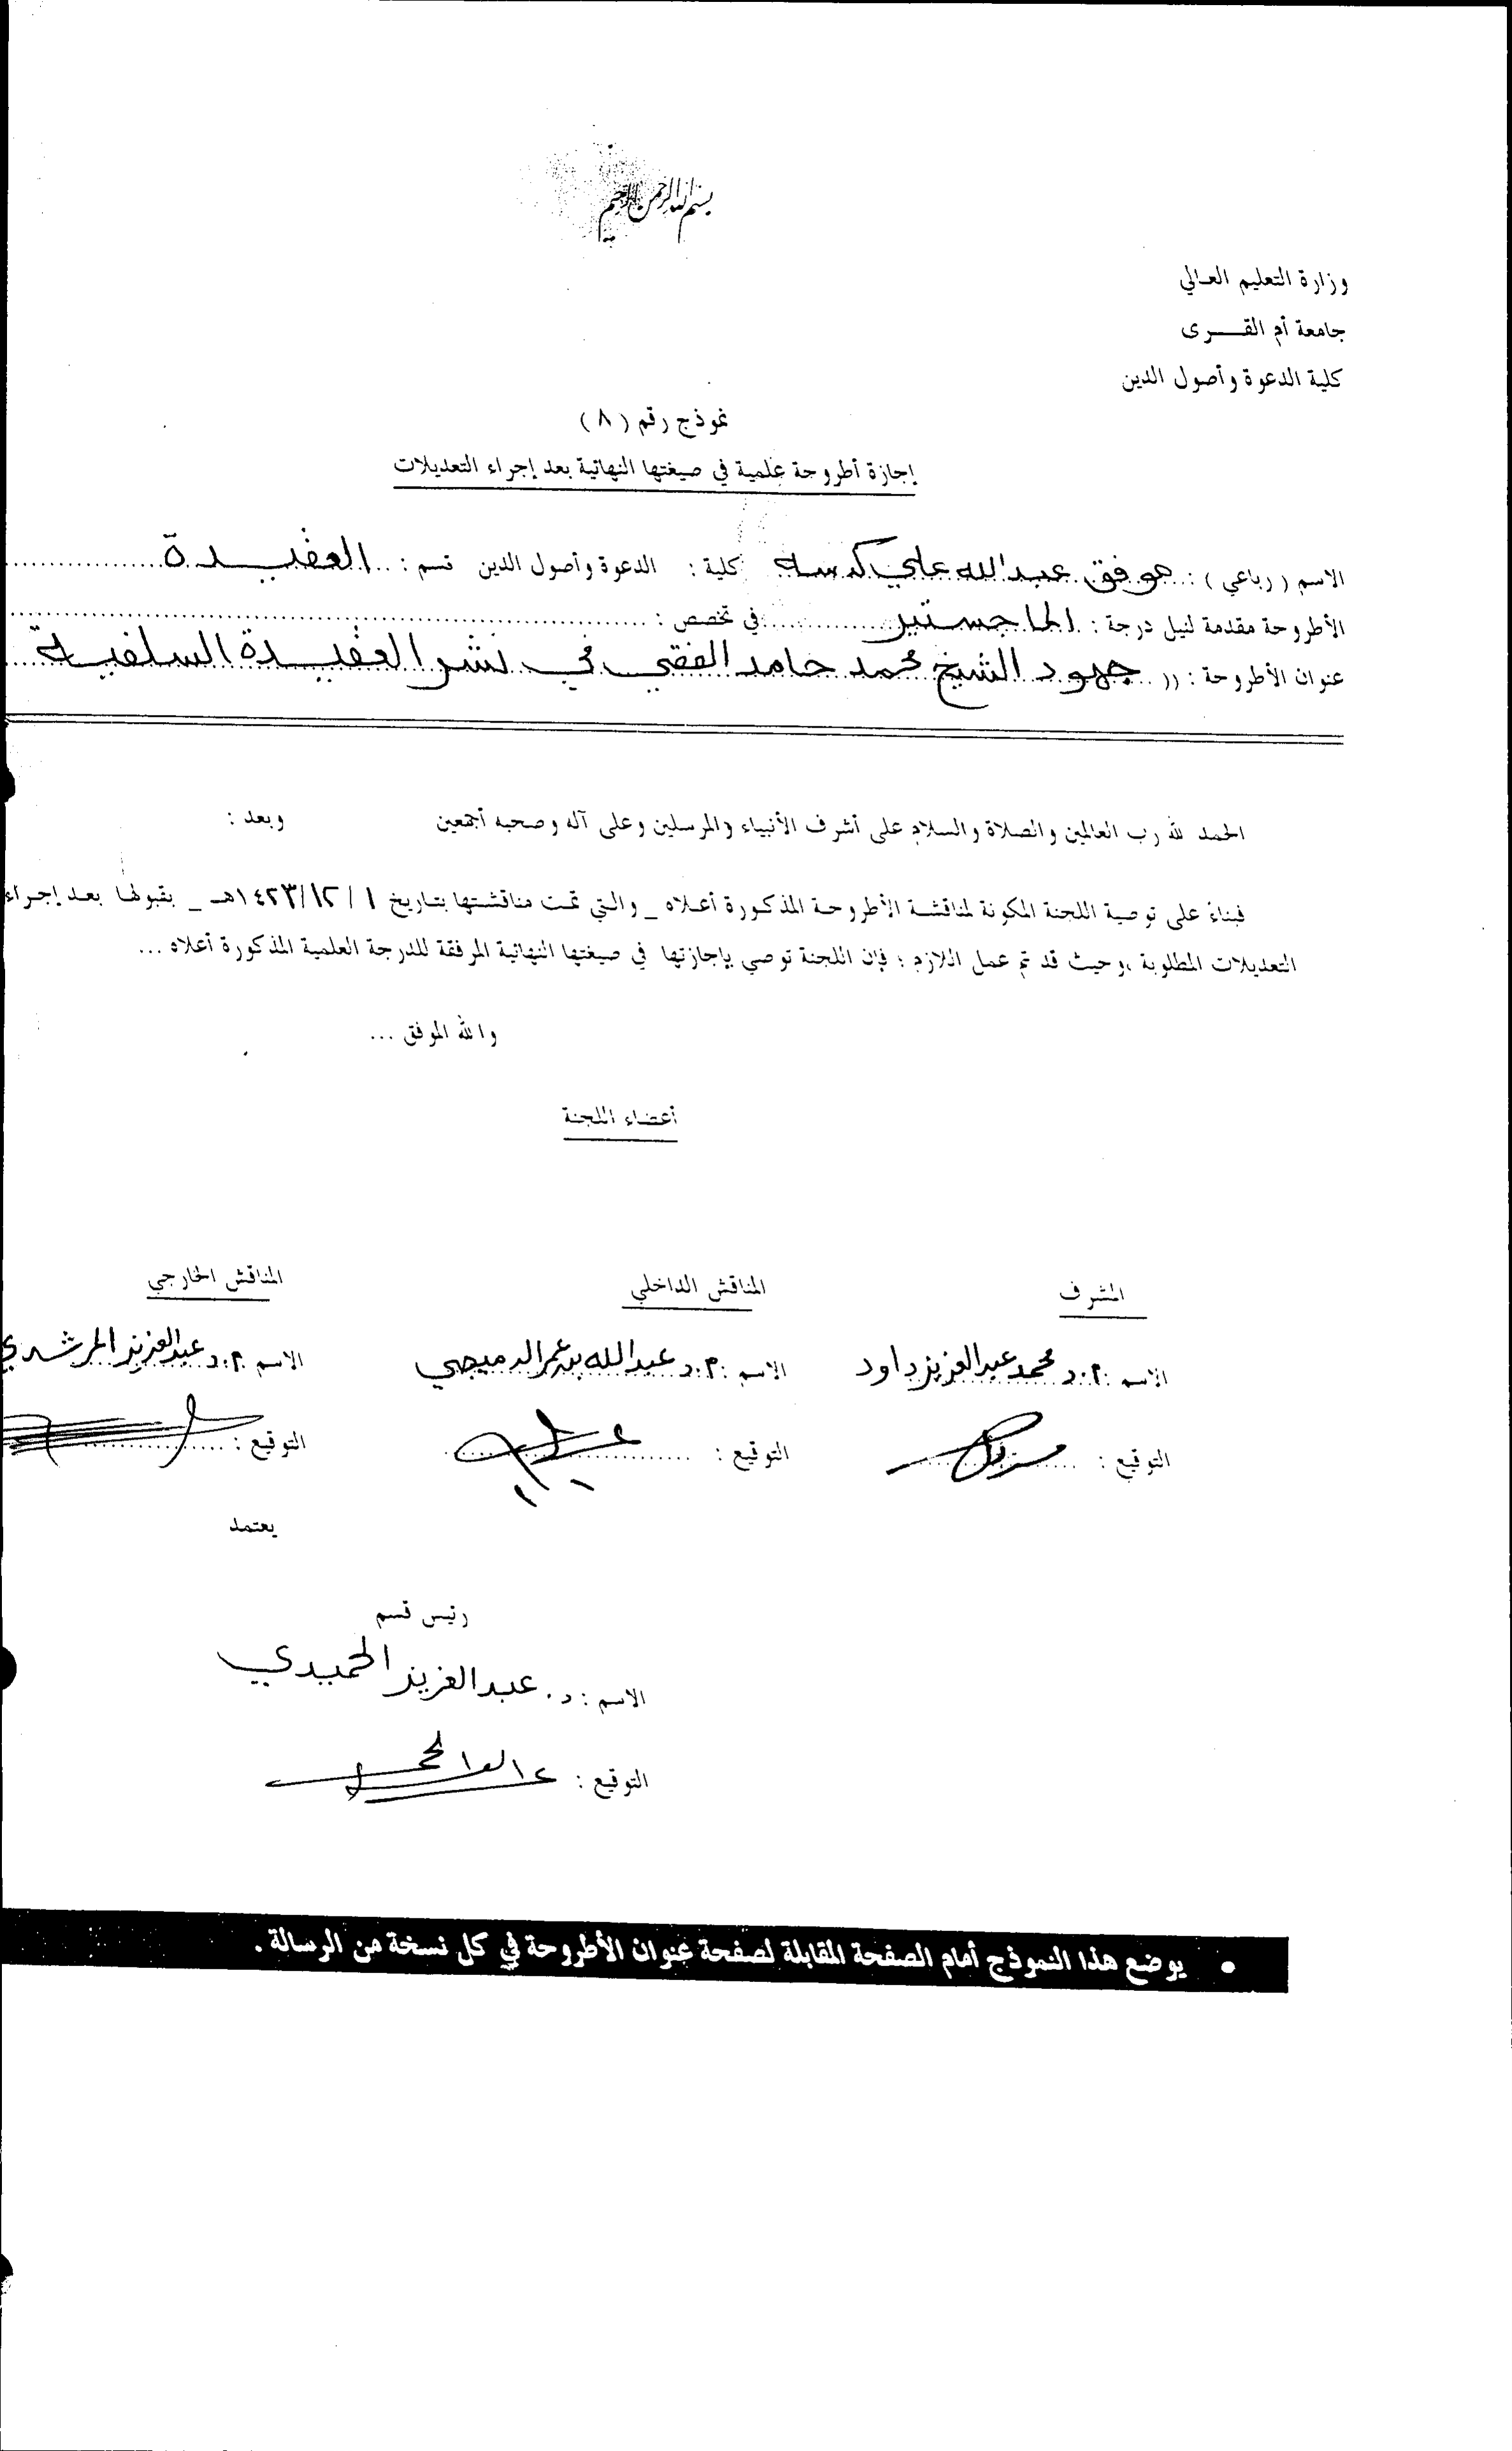 بسم الله الرحمن الرحيم
وزارة التعليم العالي
جامعة أم القـــرى
كلية الدعوة وأصول الدين
نموذج رقم ( ٨ )
إجازة أطروحة علمية في صيغتها النهائية بعد إجراء التعديلات
الاسم ( رباعي ) : موفق عبدالله علي كدسه كلية : الدعوة وأصول الدين قسم : العقيدة
الأطروحة مقدمة لنيل درجة : الماجستير في تخصص :
عنوان الأطروحة : (( جهود الشيخ محمد حامد الفقي في نشر العقيدة السلفية
الحمد لله رب العالمين والصلاة والسلام على أشرف الأنبياء والمرسلين وعلى آله وصحبه أجمعين وبعد :
فبناءً على توصية اللجنة المكونة لمناقشة الأطروحة المذكورة أعلاه _ والتي تمت مناقشتها بتاريخ ١ / ١٢ / ١٤٢٣هـ _ بقبولها بعد إجراء
التعديلات المطلوبة ، وحيث قد تم عمل اللازم ؛ فإن اللجنة توصي بإجازتها في صيغتها النهائية المرفقة للدرجة العلمية المذكورة أعلاه ...
والله الموفق ...
أعضاء اللجنة
المشرف المناقش الداخلي المناقش الخارجي
الاسم : أ.د محمد عبدالعزيز داود الاسم : أ.د عبدالله بن عمر الدميجي الاسم : أ.د عبدالعزيز المرشدي
التوقيع : التوقيع : التوقيع :
يعتمد
رئيس قسم
الاسم : د. عبدالعزيز الحميدي
التوقيع :
• يوضع هذا النموذج أمام الصفحة المقابلة لصفحة عنوان الأطروحة في كل نسخة من الرسالة .